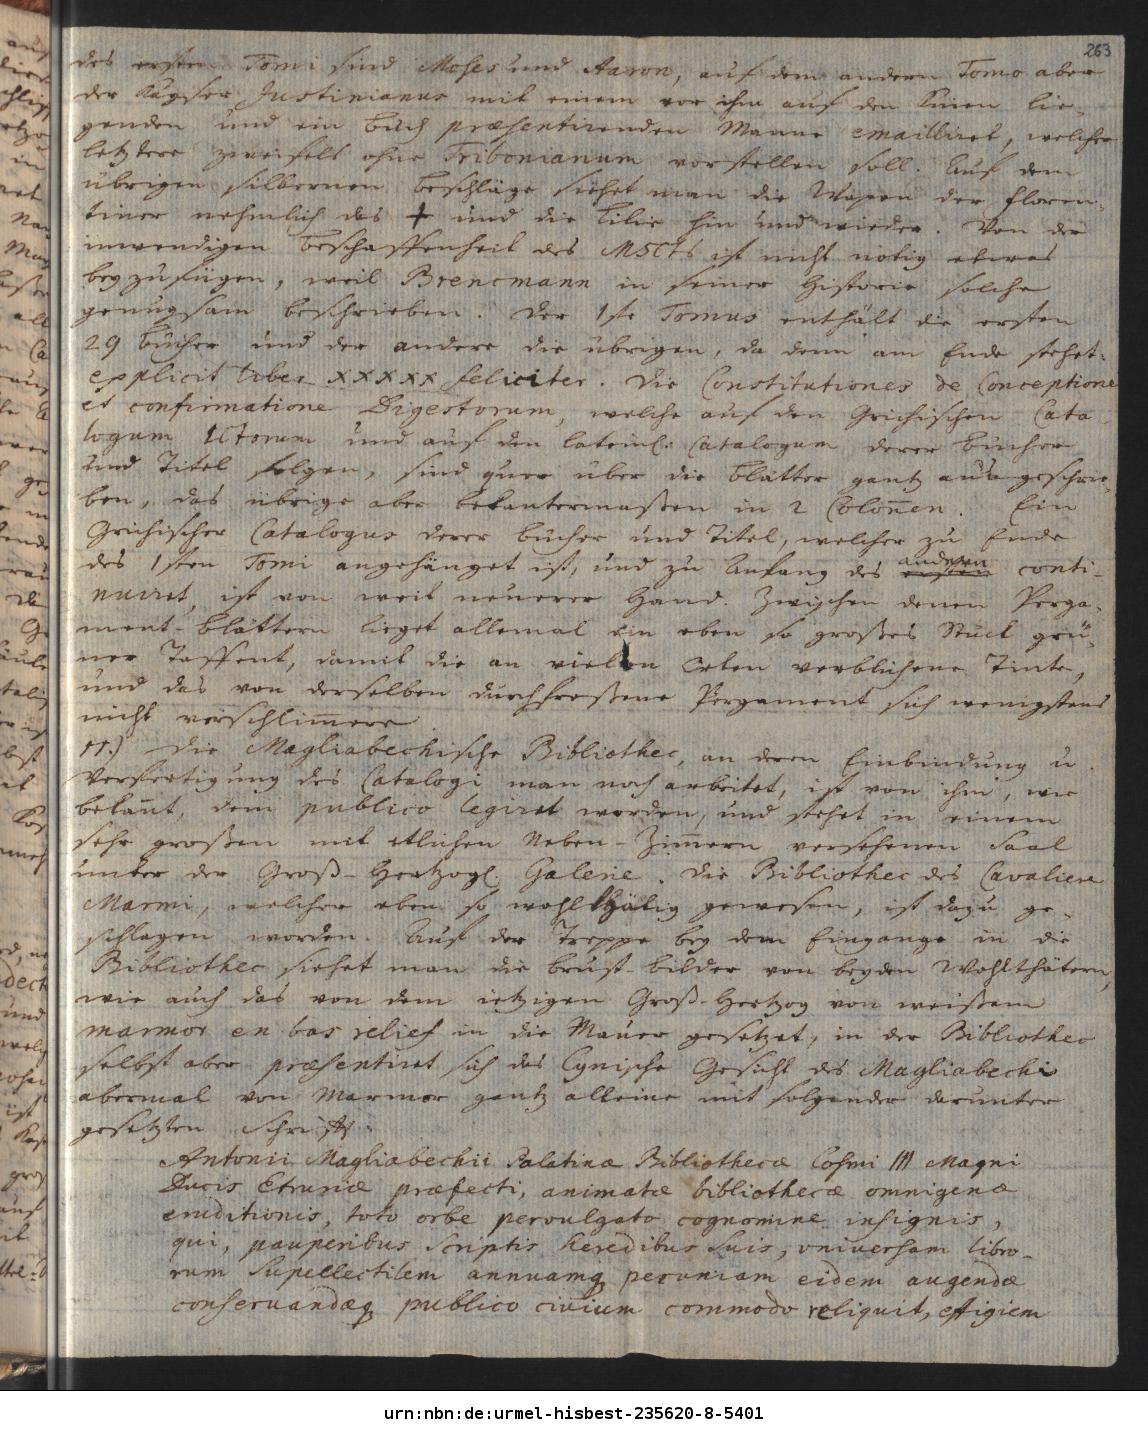 263
des ersten Tomi sind Moses und Aaron, auf dem andern Tomo aber
der Kayser Justinianus mit einem vor ihm auf den Knien lie-
genden und ein Buch præsentirenden Manne emailliret, welcher
letztere zweifels ohne Tribonianum vorstellen soll. Auf dem
übrigen silbernen Beschläge siehet man die Wapen der Floren-
tiner nehmlich das + und die Lilie hin und wieder. Von der
inwendigen Beschaffenheit des MSCts ist nicht nötig etwas
beyzufügen, weil Brencmann in seiner Historie solche
genugsam beschrieben. Der 1ste Tomus enthält die ersten
29 Bücher und der andere die übrigen, da denn am Ende stehet:
explicit liber xxxxx feliciter. Die Constitutiones de Conceptione
et confirmatione Digestorum, welche auf den Grichischen Cata-
logum ICtorum und auf den lateinl. Catalogum derer Bücher
und Titel folgen, sind quer über die Blätter gantz ausgeschrie-
ben, das übrige aber bekantermaßen in 2 Coloñen. Ein
Grichischer Catalogus derer Bücher und Titel, welcher zu Ende
des 1sten Tomi angehänget ist, und zu Anfang des andern conti-
nuiret, ist von weit neuerer Hand. Zwischen denen Perga-
ment-Blättern lieget allemal ein eben so großes Stück grü-
ner Taffent, damit die an vielen Orten verblichene Tinte,
und das von derselben durchfreßene Pergament sich wenigstens
nicht verschlim̄ere
11.) Die Magliabechische Bibliothec, an deren Einbindung u.
Verfertigung des Catalogi man noch arbeitet, ist von ihm, wie
bekañt, dem publico legiret worden, und stehet in einem
sehr großen mit etlichen Neben-Zim̄ern versehenen Saal
unter der Groß-Hertzogl. Galerie. Die Bibliothec des Cavaliere
Marmi, welcher eben so wohlthätig gewesen, ist dazu ge-
schlagen worden. Auf der Treppe bey dem Eingange in die
Bibliothec siehet man die Brust-Bilder von beyden Wohlthätern,
wie auch das von dem ietzigen Groß-Hertzog von weißem
marmor en bas relief in die Mauer gesetzet, in der Bibliothec
selbst aber præsentiret sich das Cynische Gesicht des Magliabechi
abermal von Marmor gantz alleine mit folgender darunter
gesetzten Schrift:
Antonii Magliabechii Palatinæ Bibliothecæ Cosmi III Magni
Ducis Etruriæ præfecti, animatæ bibliothecæ omnigenæ
eruditionis, toto orbe pervulgato cognomine insignis,
qui, pauperibus scriptis heredibus suis, universam libro-
rum supellectilem annuamq pecuniam eidem augendæ
conservandæq publico civium commodo reliquit, effigiem
urn:nbn:de:urmel-hisbest-235620-8-5401